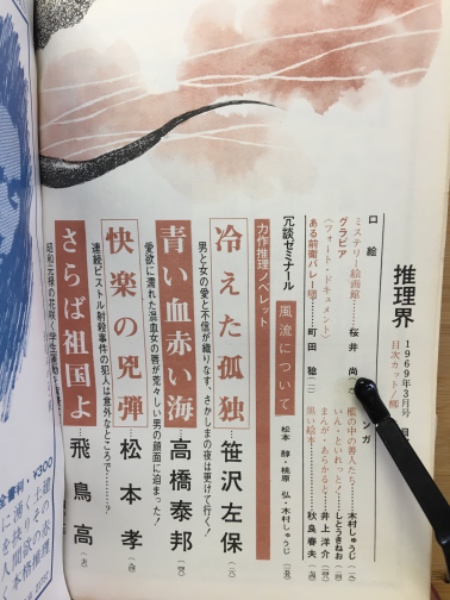 推理界
1969年3月号
目次カット/
口絵
ミステリー絵画館……桜井
グラビア
〈フォト・ドキュメント〉
ある前衛バレー団……町田
檻の中の善人たち……木村しゅうじ
いん・といれっと……しとうきねお
まんが・あらかると……井上洋介
黒い絵本……秋良春夫
冗談ゼミナール
風流について
松本醇・桃原弘・木村しゅうじ
力作推理ノベレット
冷えた孤独……笹沢左保
男と女の愛と不信が織りなす、さかしまの夜は更けて行く!
青い血赤い海……高橋泰邦
愛欲に濡れた混血女の唇が荒々しい男の顔面に迫まった!
快楽の兇弾……松本孝
連続ピストル射殺事件の犯人は意外なところで……?
さらば祖国よ……飛鳥高
昭和元禄の花咲く学生運動
¥300
本格推理